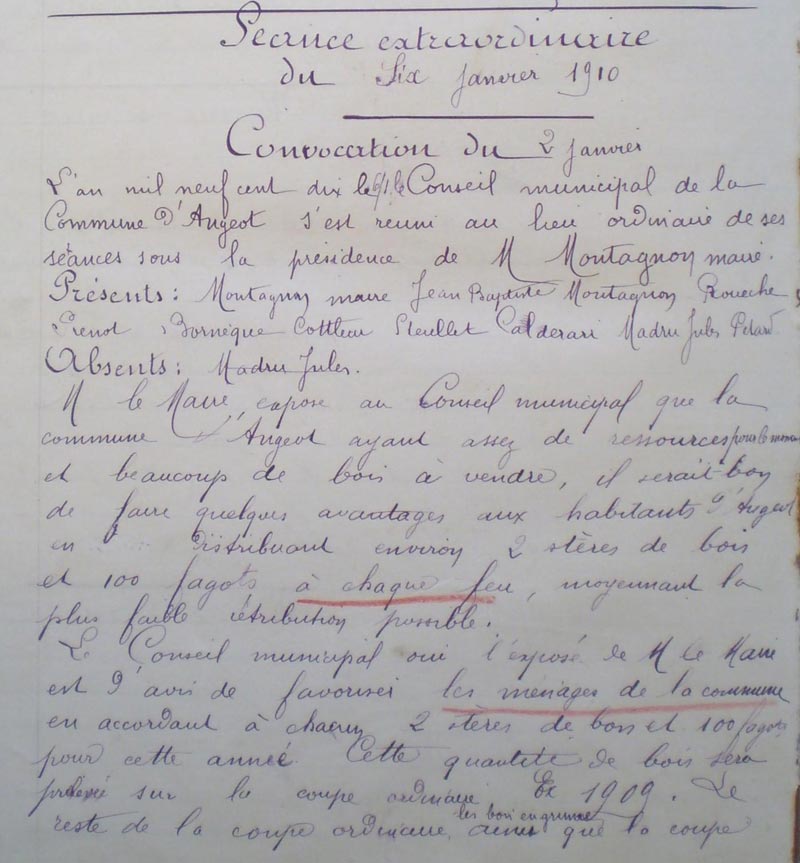 Séance extraordinaire
du Six janvier 1910
Convocation du 2 janvier
L'an mil neuf cent dix le 6/1 le Conseil municipal de la
Commune d'Angeot s'est reuni au lieu ordinaire de ses
séances sous la présidence de M Montagnon maire.
Présents : Montagnon maire Jean Baptiste Montagnon Roueche
Prenot Bornèque Cottleur Steullet Calderari Madru Jules Petard
Absents : Madru Jules.
M le Maire, expose au Conseil municipal que la
commune d'Angeot ayant assez de ressources pour le moment
et beaucoup de bois à vendre, il serait bon
de faire quelques avantages aux habitants d'Angeot
en distribuant environ 2 stères de bois
et 100 fagots à chaque feu, moyennant la
plus faible rétribution possible.
Le Conseil municipal oui l'exposé de M le Maire
est d'avis de favoriser les ménages de la commune
en accordant à chacun 2 stères de bois et 100 fagots
pour cette année. Cette quantité de bois sera
prélevé sur la coupe ordinaire Ex 1909. Le
les bois en grume
reste de la coupe ordinaire, ainsi que la coupe